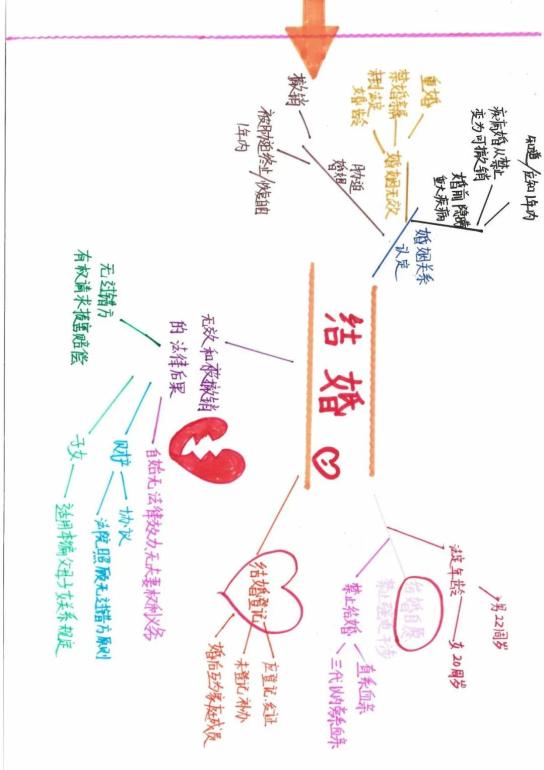 结婚
婚姻关系
认定
婚前隐瞒
重大疾病
疾病婚从禁止
变为可撤销
知道/应知1年内
婚姻无效
重婚
禁婚亲
未到法定
婚龄
胁迫
婚姻
撤销
被胁迫终止/恢复自由
1年内
无效和被撤销
的法律后果
无过错方
有权请求损害赔偿
自始无法律效力无夫妻权利义务
财产
协议
法院照顾无过错方原则
子女
适用本编父母子女关系规定
结婚登记
应登记,发证
未登记,补办
婚后互为家庭成员
结婚自愿
禁止强迫干涉
法定年龄
男22周岁
女20周岁
禁止结婚
直系血亲
三代以内旁系血亲